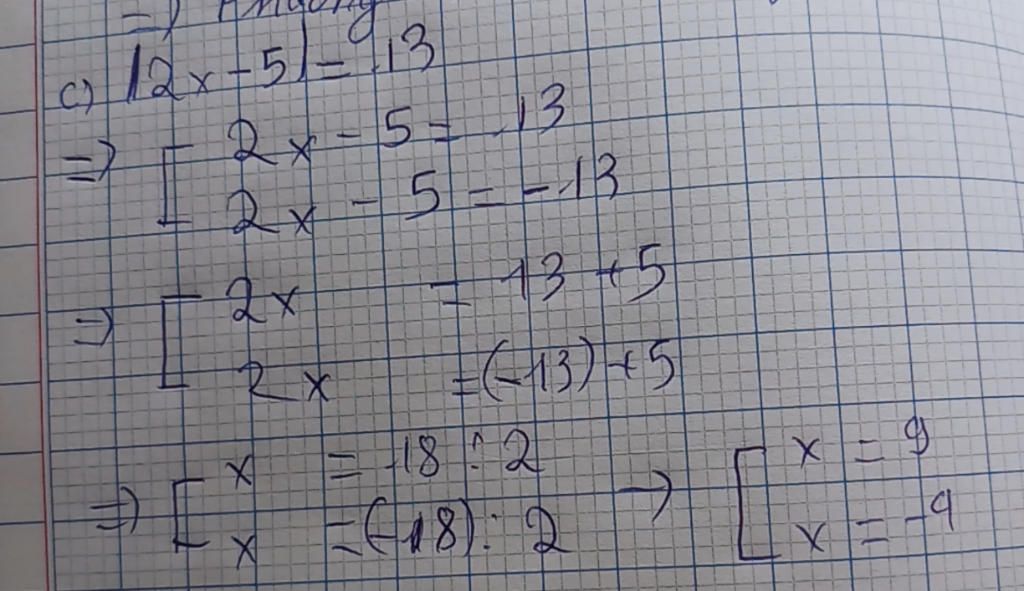 c) |2x-5| = 13
=> [ 2x - 5 = 13
2x - 5 = -13
=> [ 2x = 13 + 5
2x = (-13) + 5
=> [ x = 18 : 2 → [ x = 9
x = (-18) : 2 x = -9